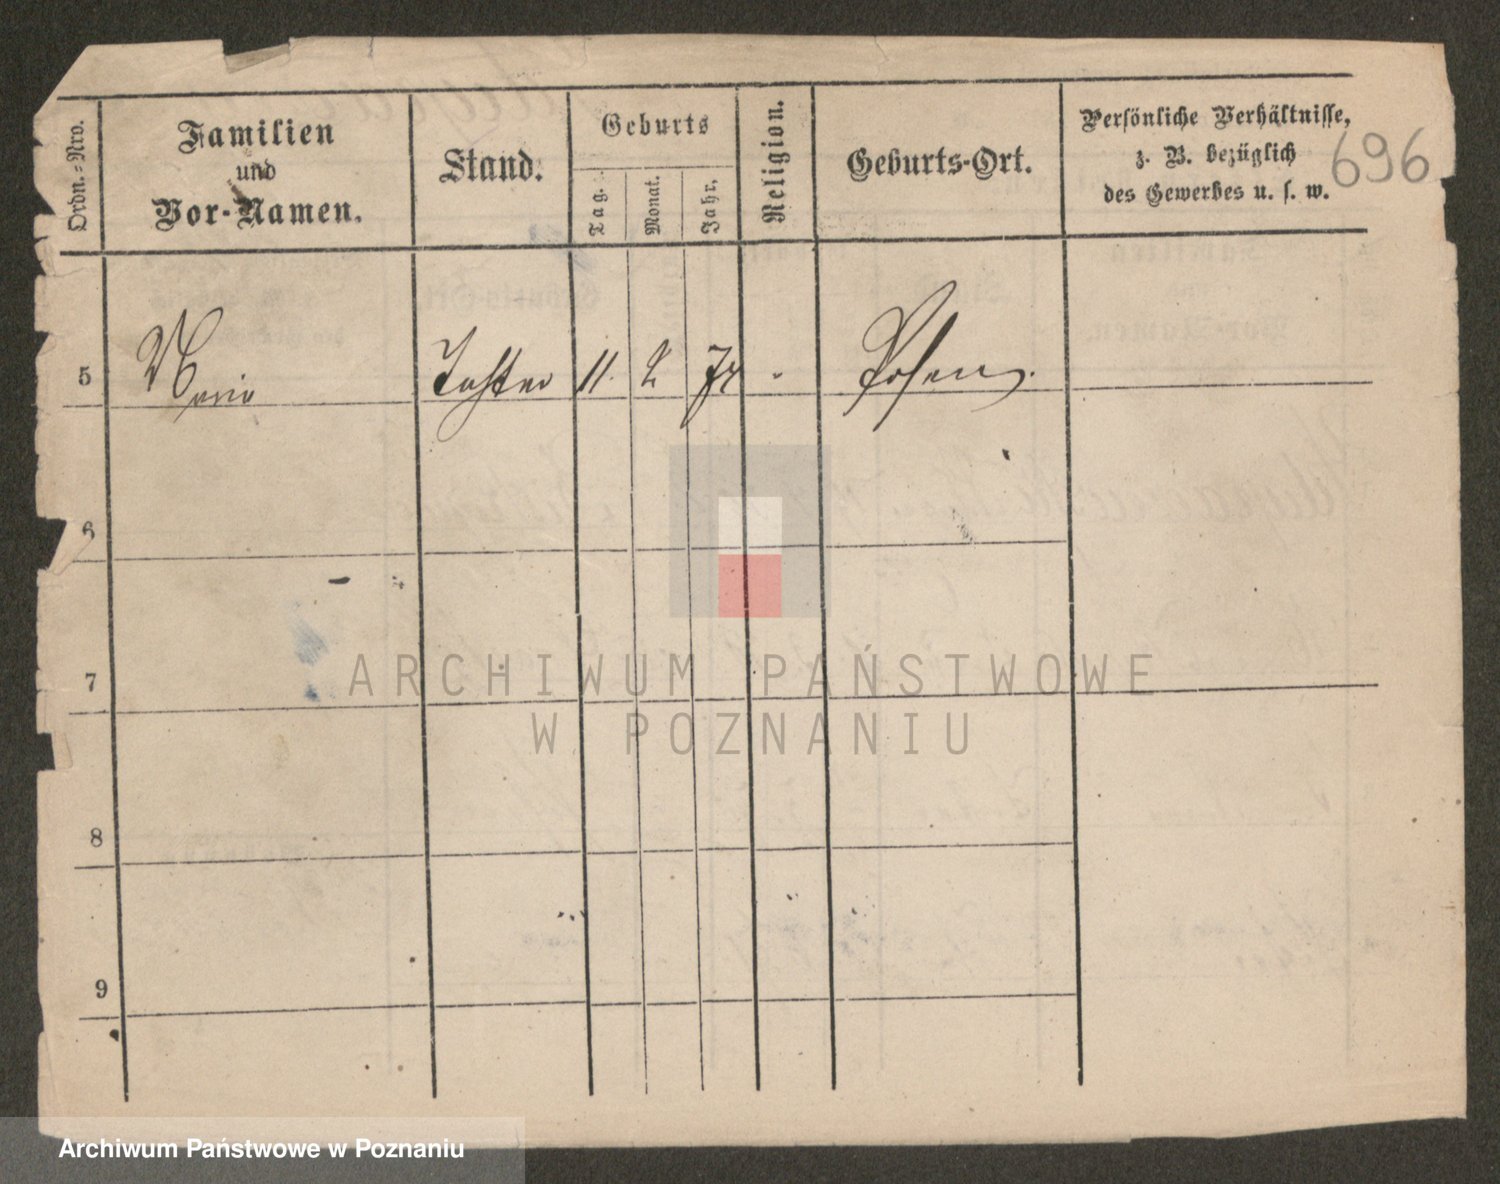 Ordn.-Nro.
Familien
und
Vor-Namen.
Stand.
Geburts
Tag.
Monat.
Jahr.
Religion.
Geburts-Ort.
Persönliche Verhältnisse,
z. B. bezüglich
des Gewerbes u. s. w.
696
5 Marie Tochter 11. 2 Posen.
6
7
8
9
ARCHIWUM PAŃSTWOWE
W POZNANIU
Archiwum Państwowe w Poznaniu